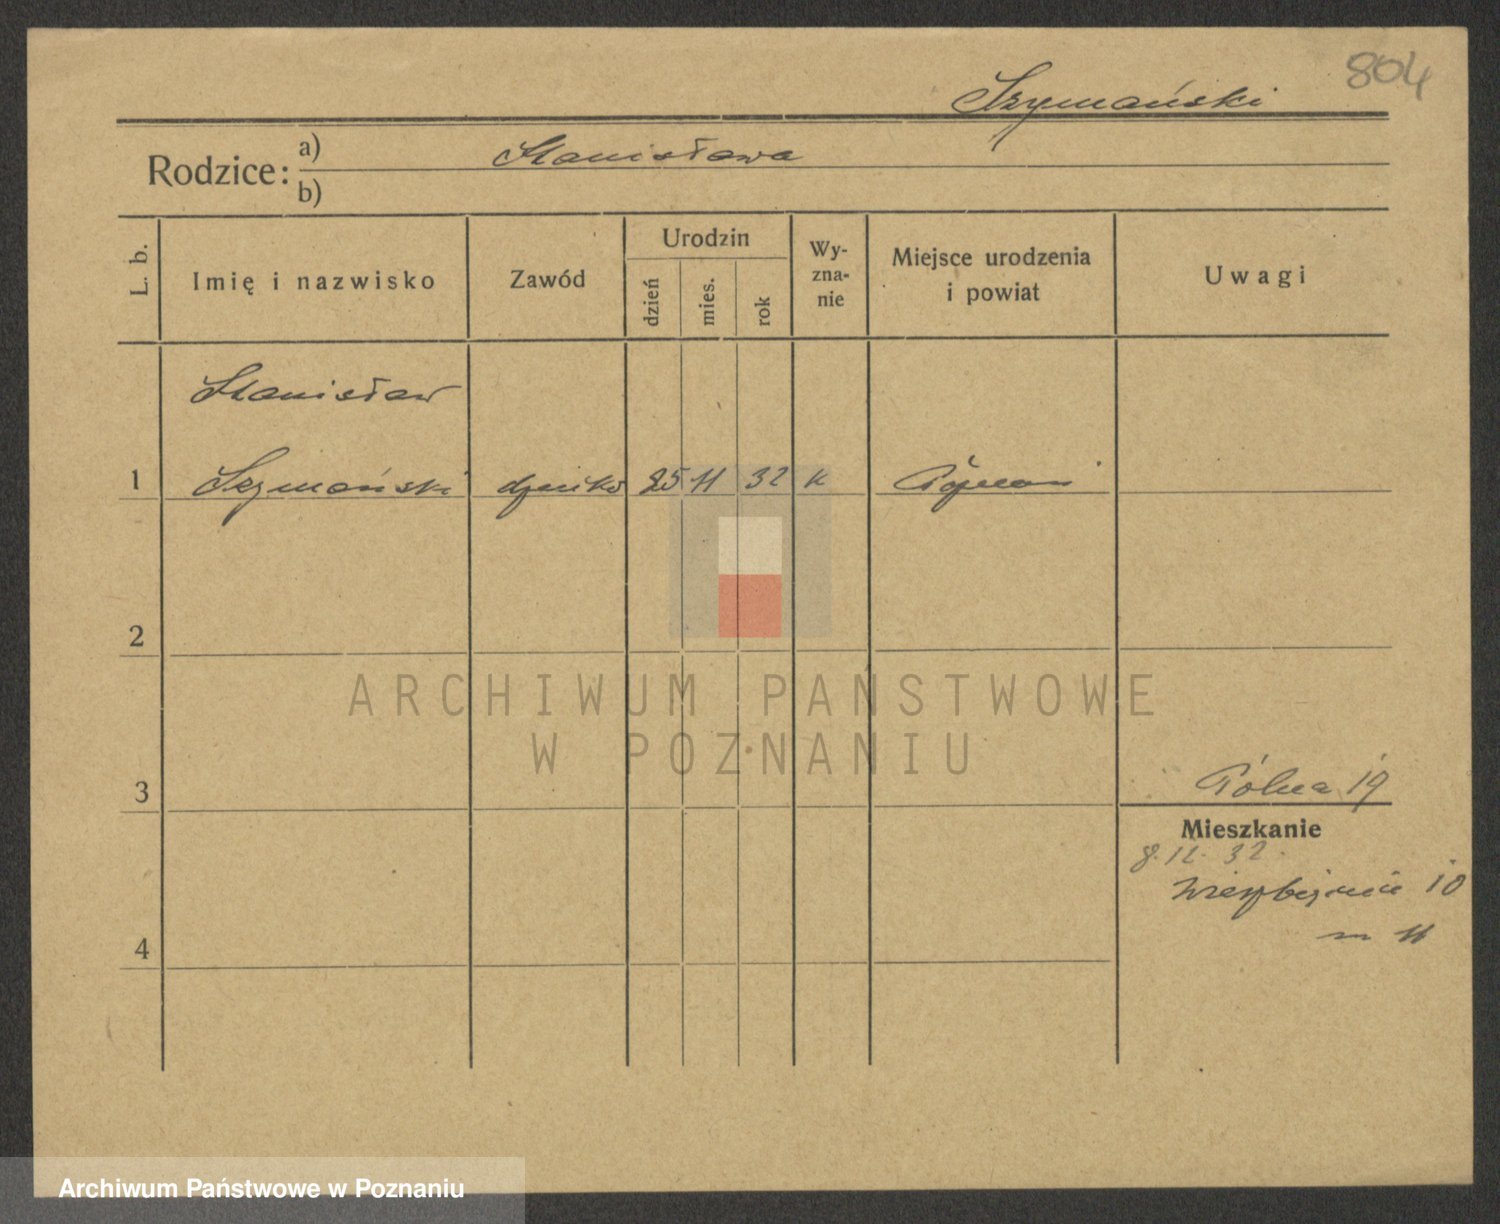 804
Szymański
Rodzice: a) Stanisława
b)
L. b.
Imię i nazwisko
Zawód
Urodzin
dzień
mies.
rok
Wy-
zna-
nie
Miejsce urodzenia
i powiat
Uwagi
Stanisław
1 Szymański dziecko 25 11 32 k Poznań
2
ARCHIWUM PAŃSTWOWE
W POZNANIU
3
Polna 19
Mieszkanie
8.12.32.
Wierzbięcice 10
m 11
4
Archiwum Państwowe w Poznaniu